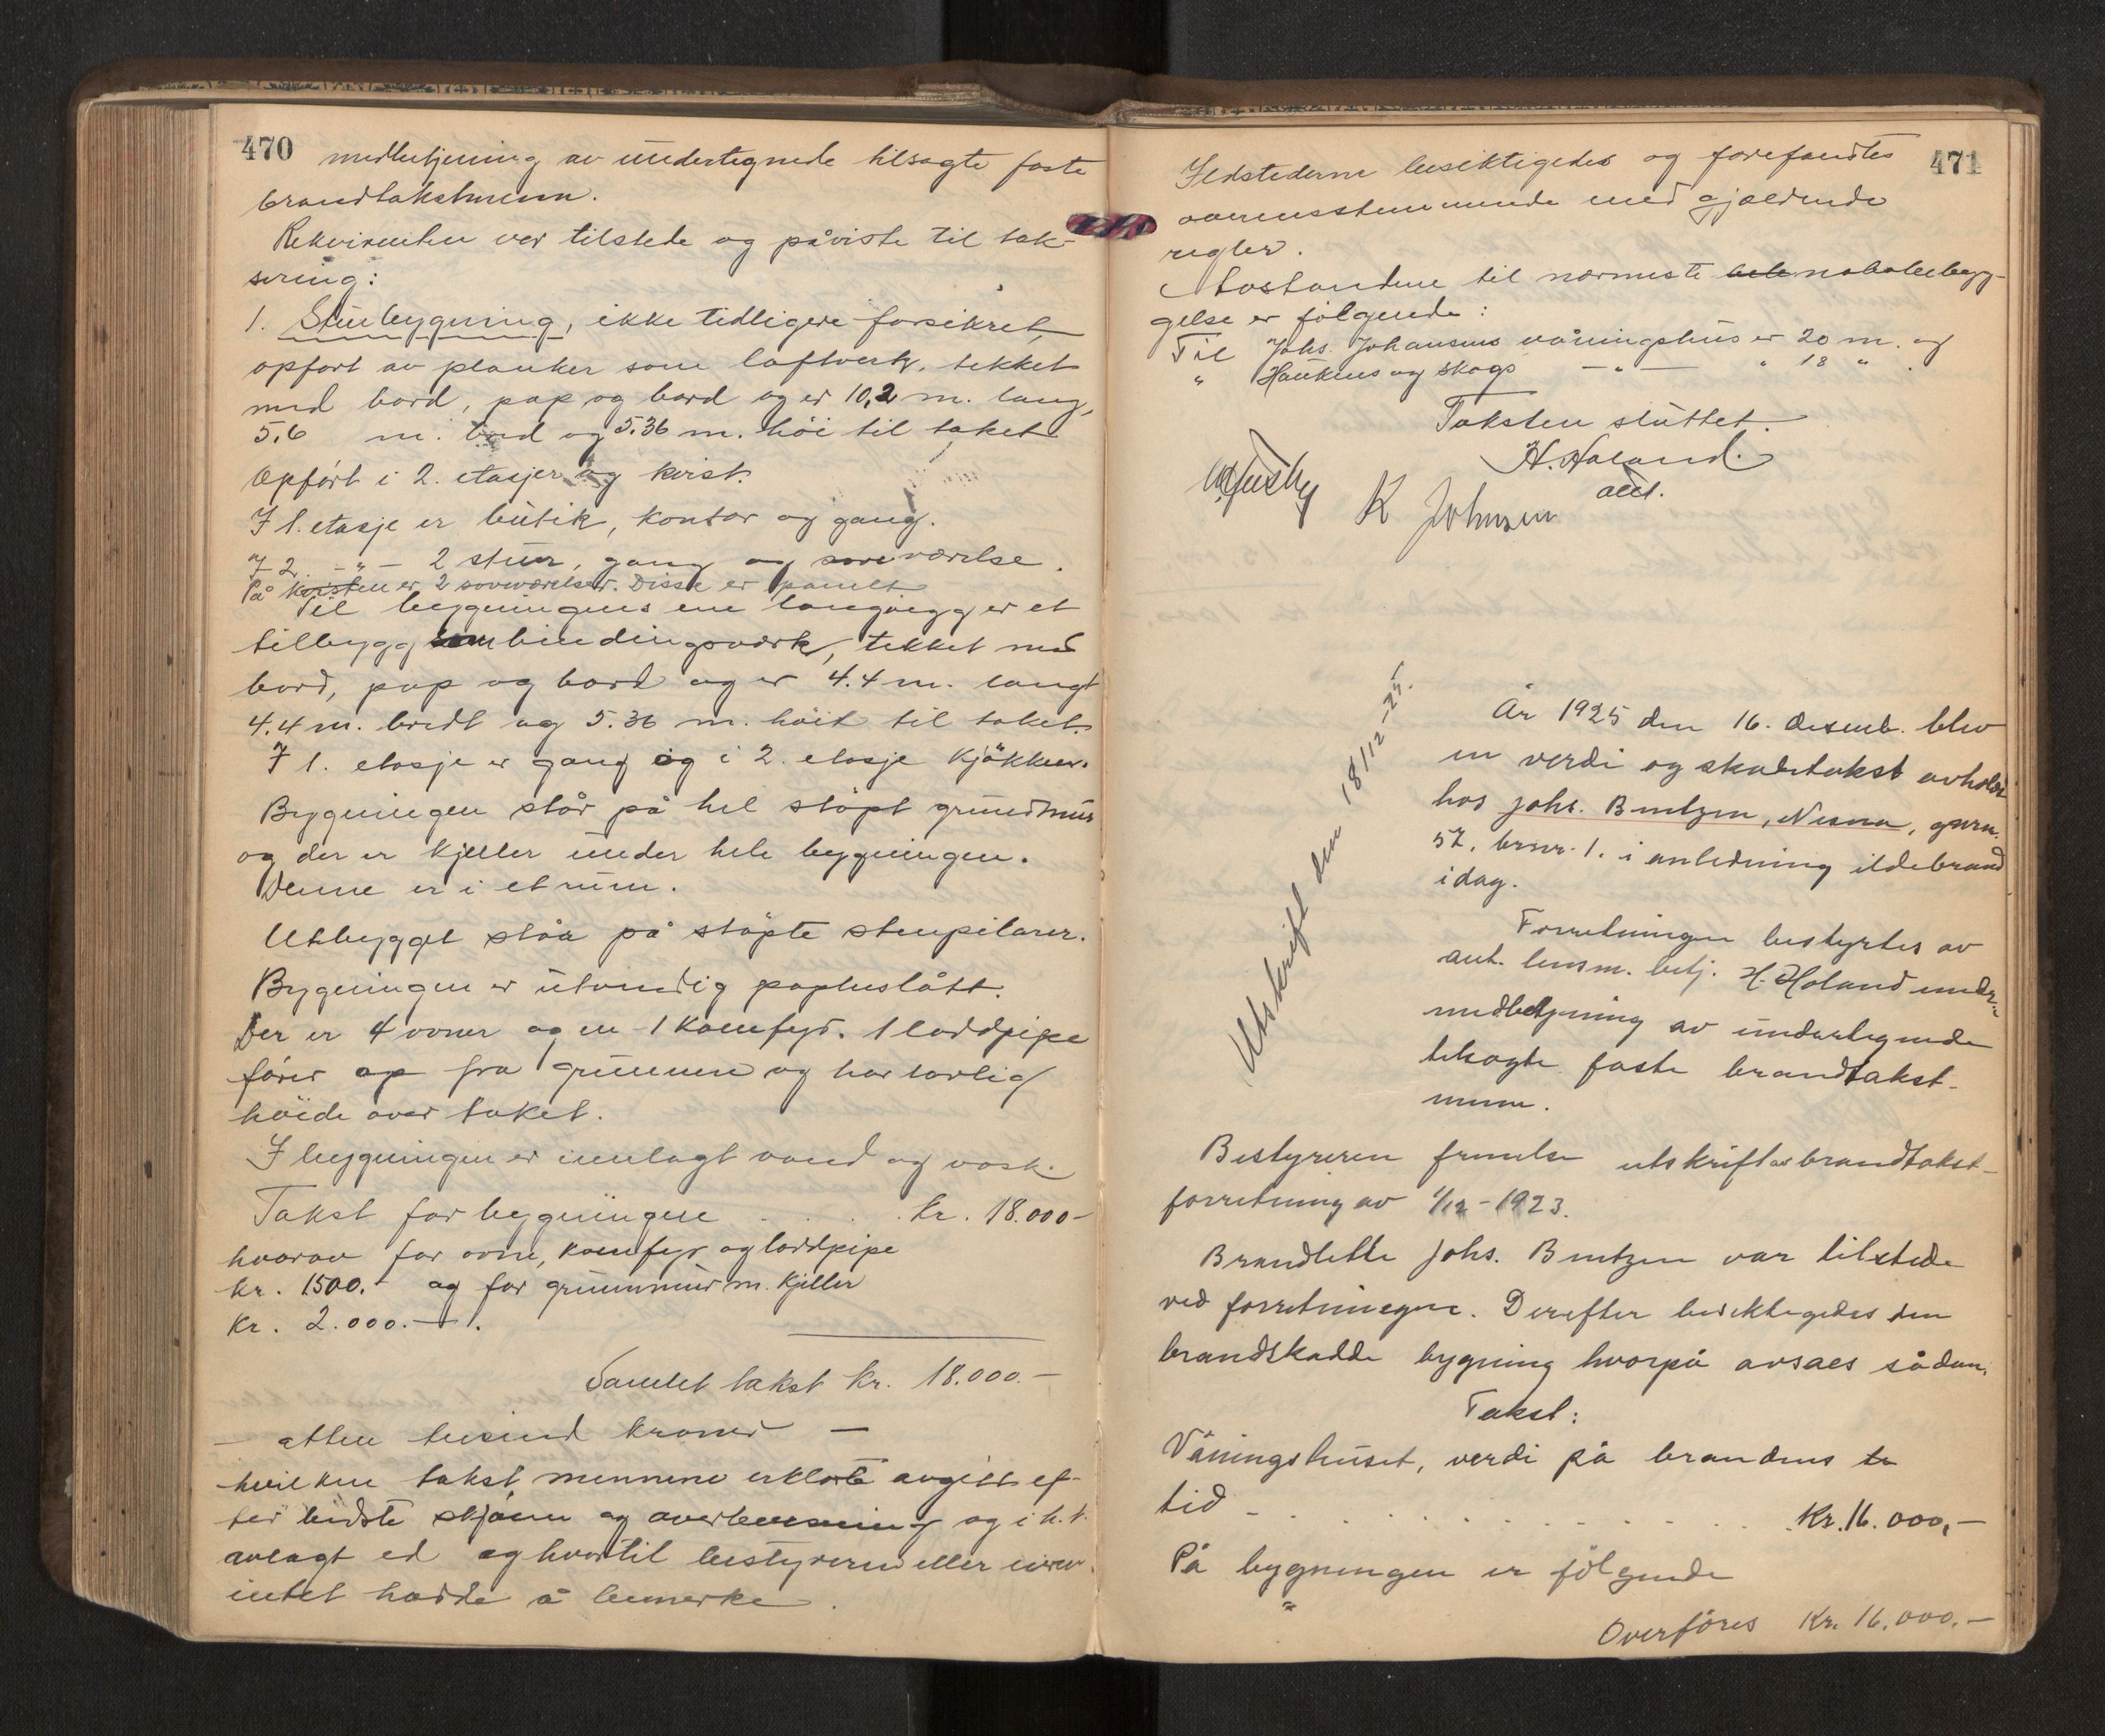 470
medbetjening av undertegnede tilsagte faste
brandtakstmenn.
Rekvirenten var tilstede og påviste til tak-
sering:
1. Stuebygning, ikke tidligere forsikret,
opført av planker som laftverk, tekket
med bord, pap og bord og er 10,2 m. lang,
5,6 m. bred og 5.36 m. höi til taket.
Opført i 2. etasjer og kvist.
I 1. etasje er butik, kontor og gang.
I 2. -"- 2 stuer, gang og soveværelse.
På kvisten er 2 soveværelser. Disse er panelt
Til bygningens ene langvegg er et
tilbygg som bindingsværk, tekket med
bord, pap og bord og er 4.4 m. langt
4.4 m. bredt og 5.36 m. höit til taket.
I 1. etasje er gang og i 2. etasje kjökken.
Bygningen står på hel stöpt grundmur
og der er kjeller under hele bygningen.
Denne er i et rum.
Utbygget står på støpte stenpilarer.
Bygningen er utvendig papbeslått.
Der er 4 ovner og en - 1 komfyr. 1 loddpipe
förer op fra grunnen og har lovlig
höide over taket.
I bygningen er innlagt vand og vask.
Takst for bygningen . . . . kr. 18.000-
hvorav for ovne, komfyr og loddpipe
kr. 1500.- og for grunnmur m. kjeller
kr. 2.000.-.
Samlet takst kr. 18.000.-
- atten tusind kroner -
hvilken takst mennene erklærte avgitt ef-
ter bedste skjønn og overbevisning og i h.t.
avlagt ed og hvortil bestyreren eller eieren
intet hadde å bemerke.
471
Ildstederne besiktigedes og forefandtes
overensstemmende med gjældende
regler.
Avstandene til nærmeste nabobebyg-
gelse er følgende:
Til Johs. Johansens våningshus er 20 m. og
" Haukens og Skogs -"- " 18 " .
Taksten sluttet.
H. Haland.
aut.
K Johnsen
Utskrift den 18/12-25.
År 1925 den 16. desemb. blev
en verdi og skadetakst avholdt
hos Johs. Bentzen, Nesna, gårn.
57, brnr. 1. i anledning ildebrand
idag.
Forretningen bestyrtes av
aut. lensm. betj. H. Haland under
medbetjening av undertegnede
tilsagte faste brandtakst-
menn.
Bestyreren fremla utskrift av brandtakst-
forretning av 1/12-1923.
Brandlette Johs. Bentzen var tilstede
ved forretningen. Derefter besiktigedes den
brandskadde bygning hvorpå avsaes sådan
Takst:
Våningshuset, verdi på brandens
tid - . . . . . . . . . Kr. 16.000,-
På bygningen er fölgende
Overföres Kr. 16.000.-